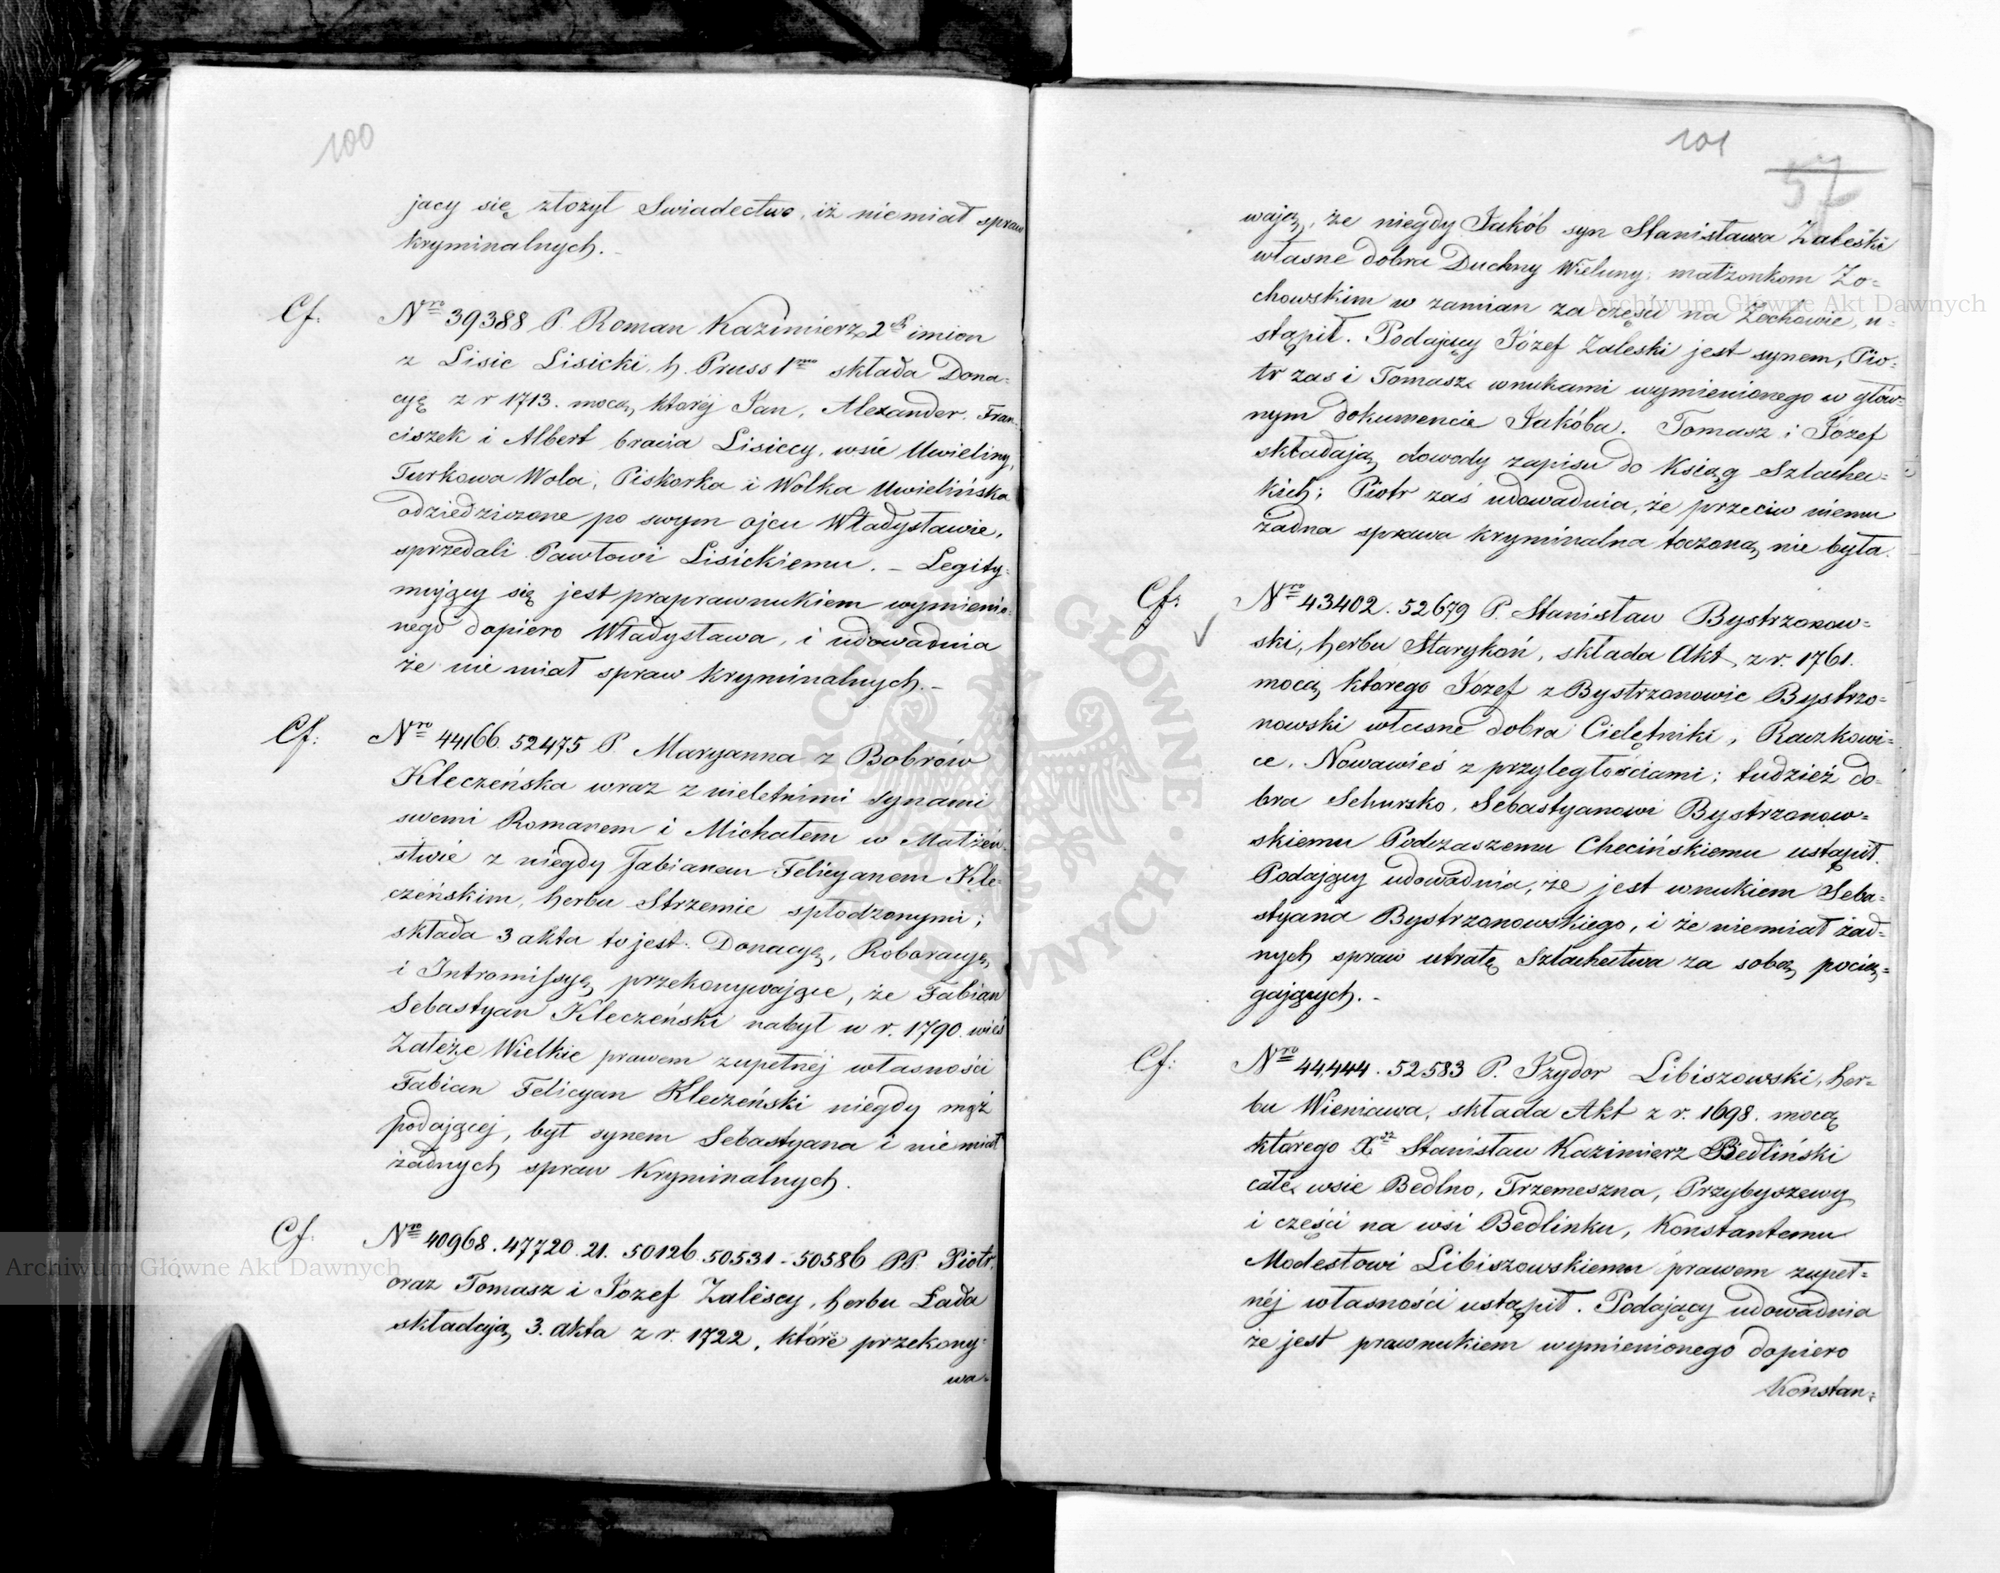 100
jacy się złożył Swiadectwo, iż nie miał spraw
kryminalnych. -
Cf. Nro 39388 P. Roman Kazimierz 2ch imion
z Lisic Lisicki h. Pruss 1mo składa Dona=
cyę z r 1713. mocą której Jan, Alexander, Fran=
ciszek i Albert bracia Lisiccy, wsie Uwieliny,
Turkowa Wola, Piskorka i Wolka Uwielińska
odziedziczone po swym ojcu Władysławie,
sprzedali Pawłowi Lisickiemu. - Legity=
mujący się jest praprawnukiem wymienio=
nego dopiero Władysława, i udowadnia
że nie miał spraw kryminalnych. -
Cf: Nro 44166. 52475 P Maryanna z Bobrów
Kleczeńska wraz z nieletnimi synami
swemi Romanem i Michałem w Małżeń=
stwie z niegdy Fabianem Felicyanem Kle=
czeńskim, herbu Strzemie spłodzonymi;
składa 3 akta to jest: Donacyę, Roboracyę,
i Intromissyę, przekonywające, że Fabian
Sebastyan Kleczeński nabył w r. 1790. wieś
Załęże Wielkie prawem zupełnéj własności
Fabian Felicyan Kleczeński niegdy mąż
podającej, był synem Sebastyana i nie miał
żadnych spraw kryminalnych.
Cf. Nro 40968. 47720. 21. 50126. 50531 - 50586 PP. Piotr,
oraz Tomasz i Józef Zalescy, herbu Łada
składają 3. akta z r. 1722, które przekony=
wa=
101
57
wają, że niegdy Jakób syn Stanisława Zaleski
własne dobra Duchny Wieluny, małżonkom Żo=
chowskim w zamian za części na Żochowie, u=
stąpił. Podający Józef Zaleski jest synem, Pio=
tr zas i Tomasz wnukami wymienionego w głów=
nym dokumencie Jakóba. Tomasz i Józef
składają dowody zapisu do Ksiąg Szlachec=
kich; Piotr zaś udowadnia, że przeciw niemu
żadna sprawa kryminalna toczoną nie była.
Cf: Nro 43402. 52679 P. Stanisław Bystrzonow=
ski, herbu Starykoń, składa Akt z r. 1761.
mocą którego Józef z Bystrzonowic Bystrzo=
nowski własne dobra Cielętniki, Raczkowi=
ce, Nowawieś z przyległościami; tudzież do=
bra Sehursko, Sebastyanowi Bystrzonow=
skiemu Podczaszemu Checińskiemu ustąpił.
Podający udowadnia, że jest wnukiem Seba=
styana Bystrzonowskiego, i że nie miał żad=
nych spraw utratę Szlachectwa za sobą pocią=
gających. -
Cf: Nro 44,444. 52583 P. Izydor Libiszowski, her=
bu Wieniawa, składa Akt z r. 1698. mocą
którego Xdz Stanisław Kazimierz Bedliński
całe wsie Bedlno, Trzemeszna, Przybyszewy
i części na wsi Bedlinku, Konstantemu
Modestowi Libiszowskiemu prawem zupeł=
néj własności ustąpił. Podający udowadnia
że jest prawnukiem wymienionego dopiero
Konstan=
Archiwum Główne Akt Dawnych
Archiwum Główne Akt Dawnych